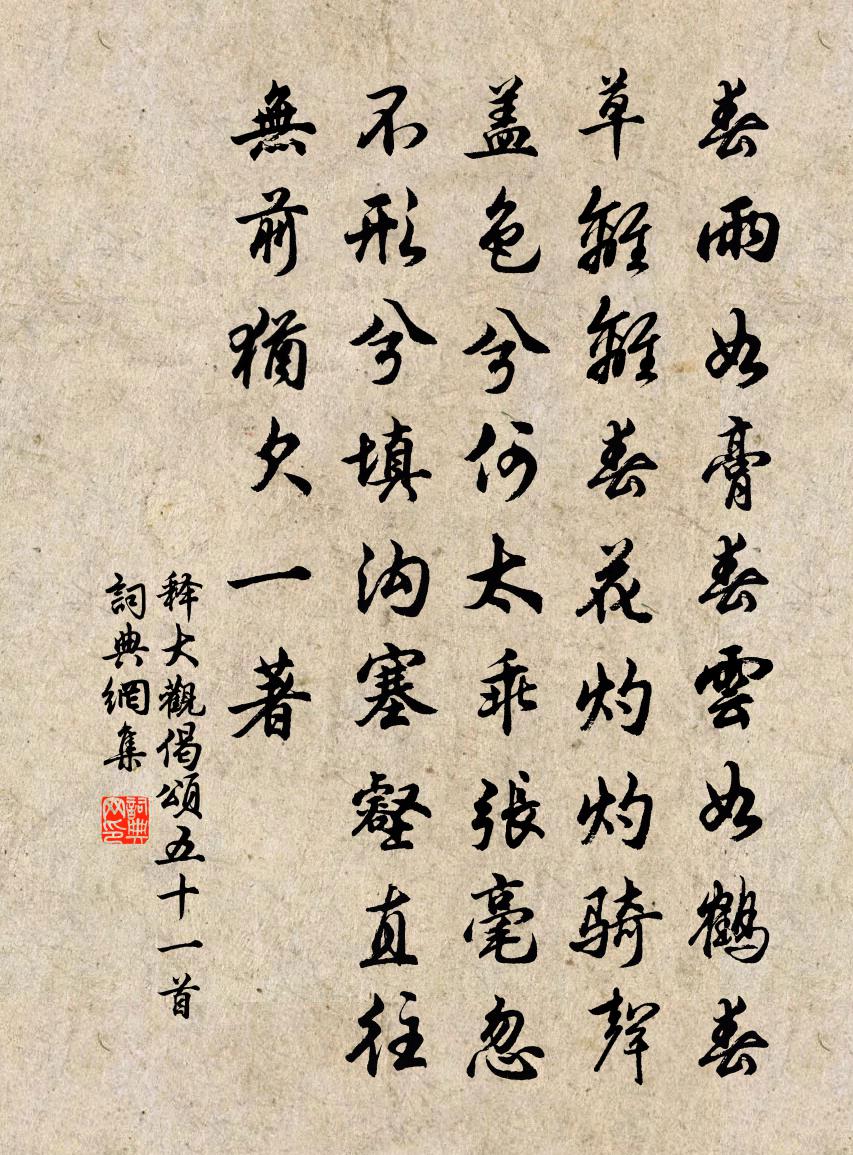 春雨如膏春雲如鶴春
草離離春花灼灼騎聲
盖色兮何太乖張毫忽
不形兮填沟塞壑直往
無前猶欠一著
释大觀偈頌五十一首
詞典網集
詞典网印